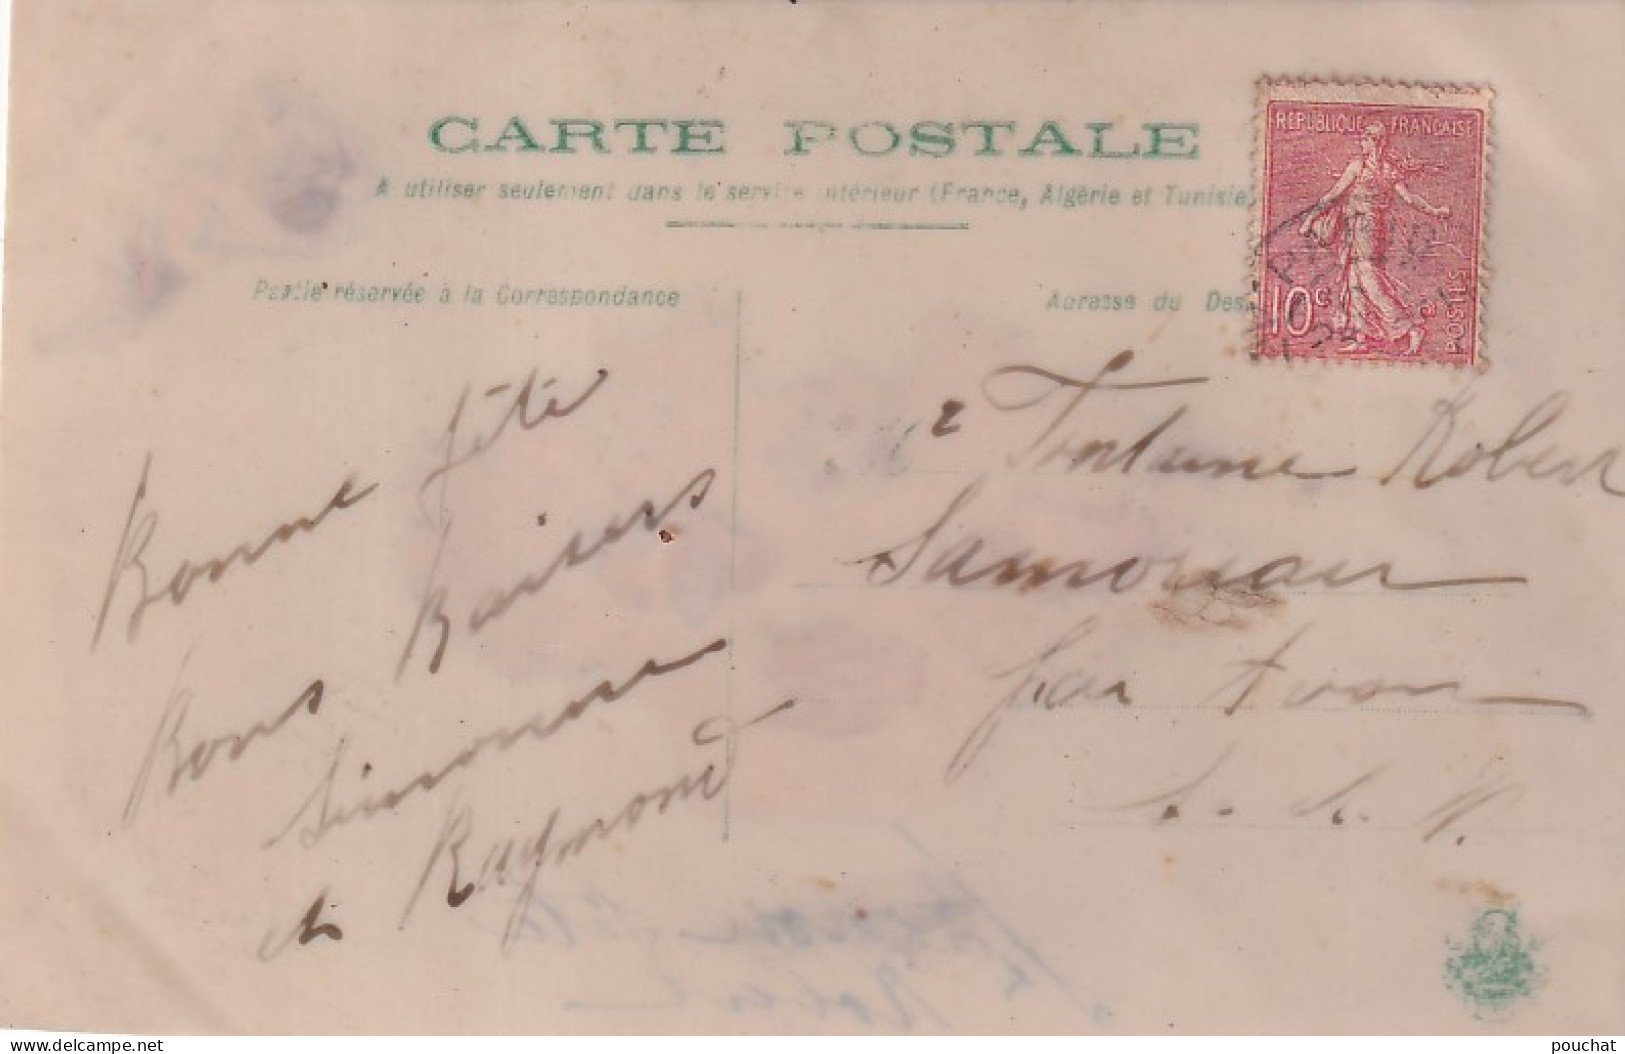 CARTE POSTALE
A utiliser seulement dans le service intérieur (France, Algérie et Tunisie)
Partie réservée à la Correspondance
Adresse du Des
RÉPUBLIQUE FRANÇAISE
10c
POSTES
Bonne fête
Bons Baisers
Simonne
et Raymond
Mr Fontaine Robert
Samoreau
par Avon
S. et M.
Robert
pouchat